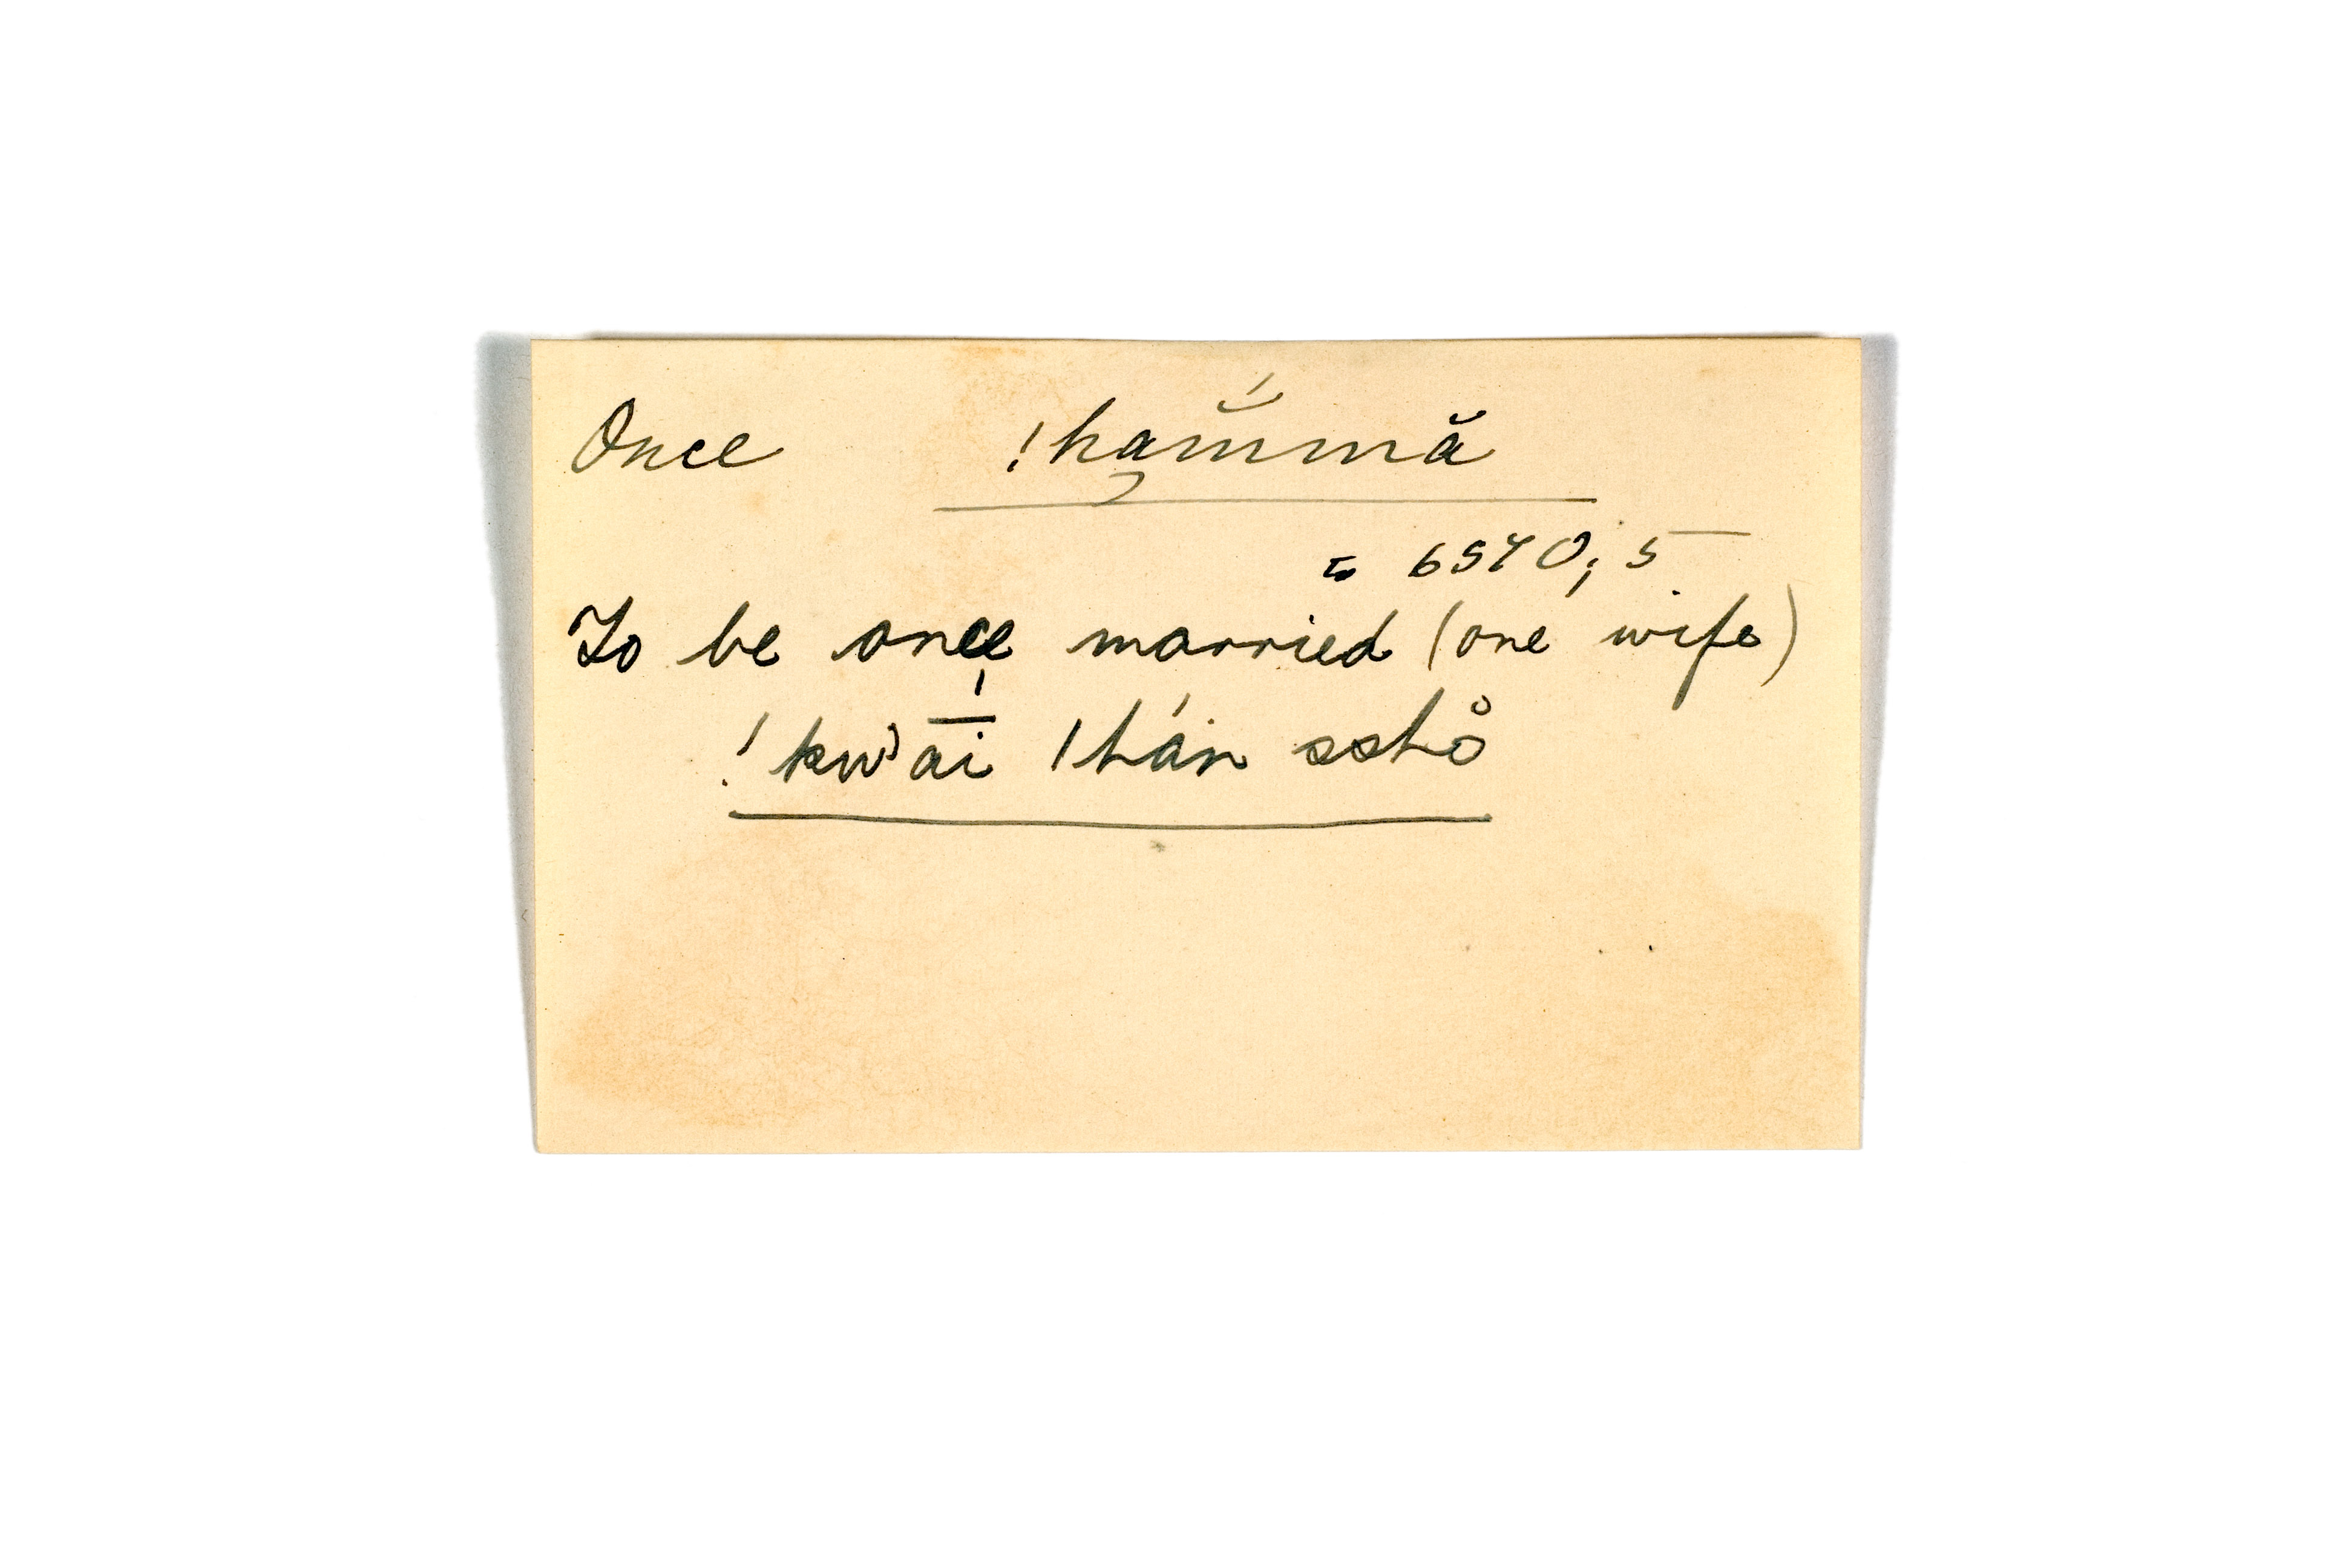 Once !ham̆́mă
= 6540; 5
To be once married (one wife)
!kwʾā́i |hán ssho̊